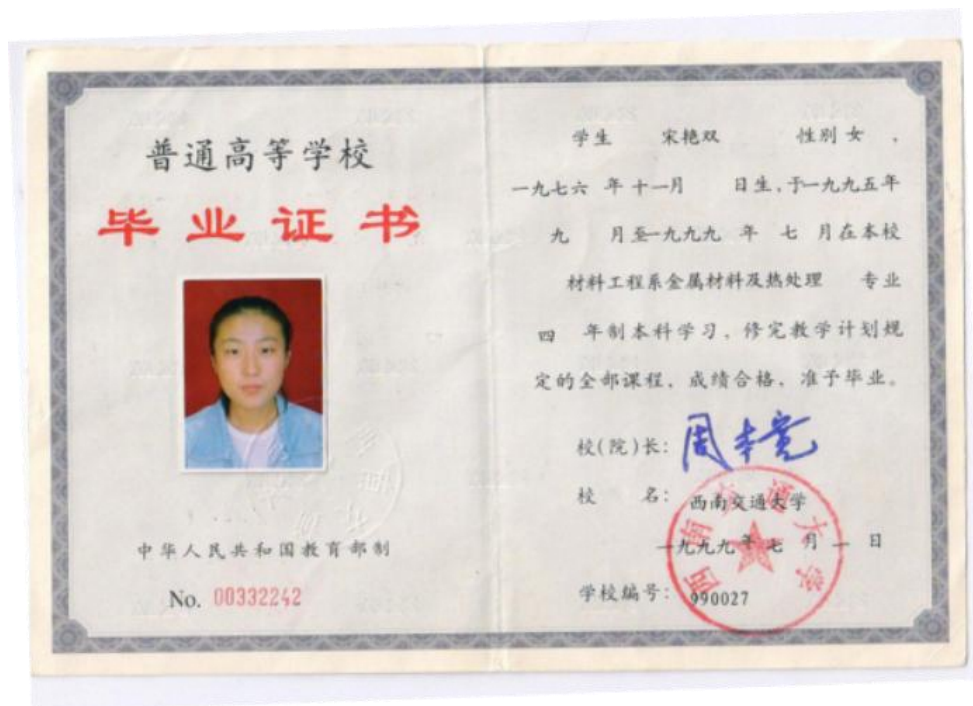 普通高等学校
毕业证书
中华人民共和国教育部制
No. 00332242
学生 宋艳双 性别 女 ,
一九七六 年 十一月 日生,于一九九五年
九 月至一九九九 年 七 月在本校
材料工程系金属材料及热处理 专业
四 年制本科学习,修完教学计划规
定的全部课程,成绩合格,准予毕业。
校(院)长: 周本宽
校 名: 西南交通大学
一九九九年七 月 一 日
学校编号: 990027
西南交通大学